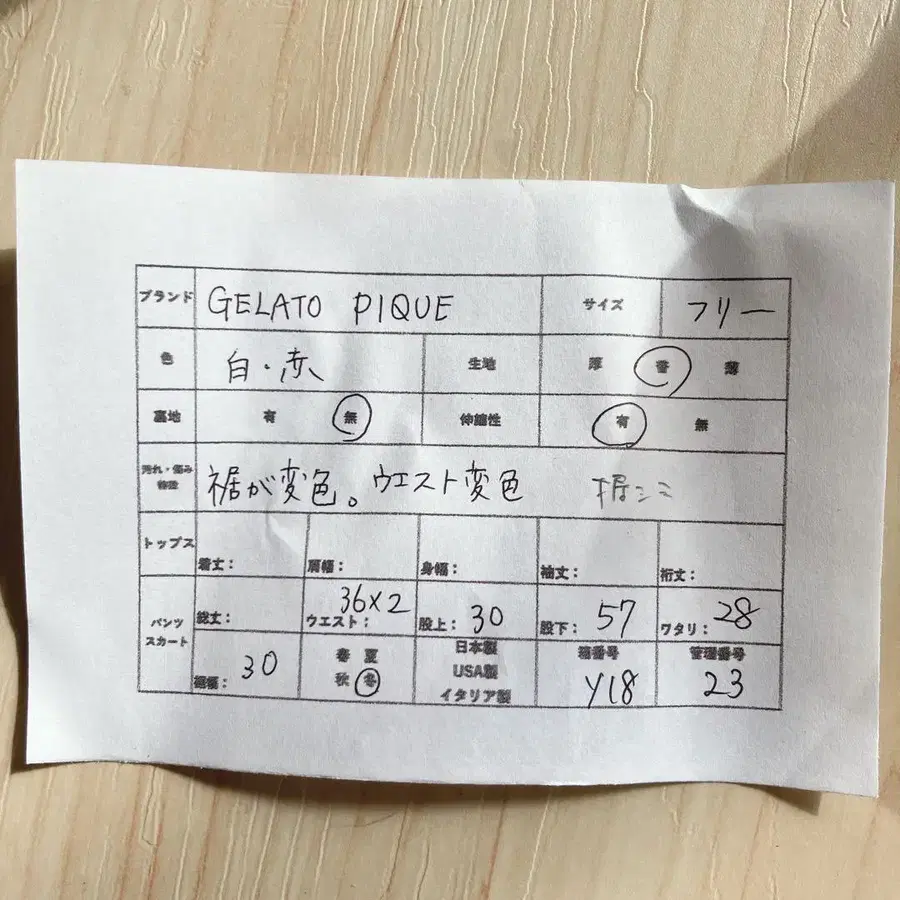 ブランド GELATO PIQUE サイズ フリー
色 白・赤 生地 厚 普 薄
裏地 有 無 伸縮性 有 無
汚れ・傷み 裾が変色。ウエスト変色 裾シミ
トップス 着丈: 肩幅: 身幅: 袖丈: 裄丈:
パンツ スカート 総丈: ウエスト: 36×2 股上: 30 股下: 57 ワタリ: 28
裾幅: 30 春 夏 秋 冬 日本製 USA製 イタリア製 箱番号 Y18 管理番号 23